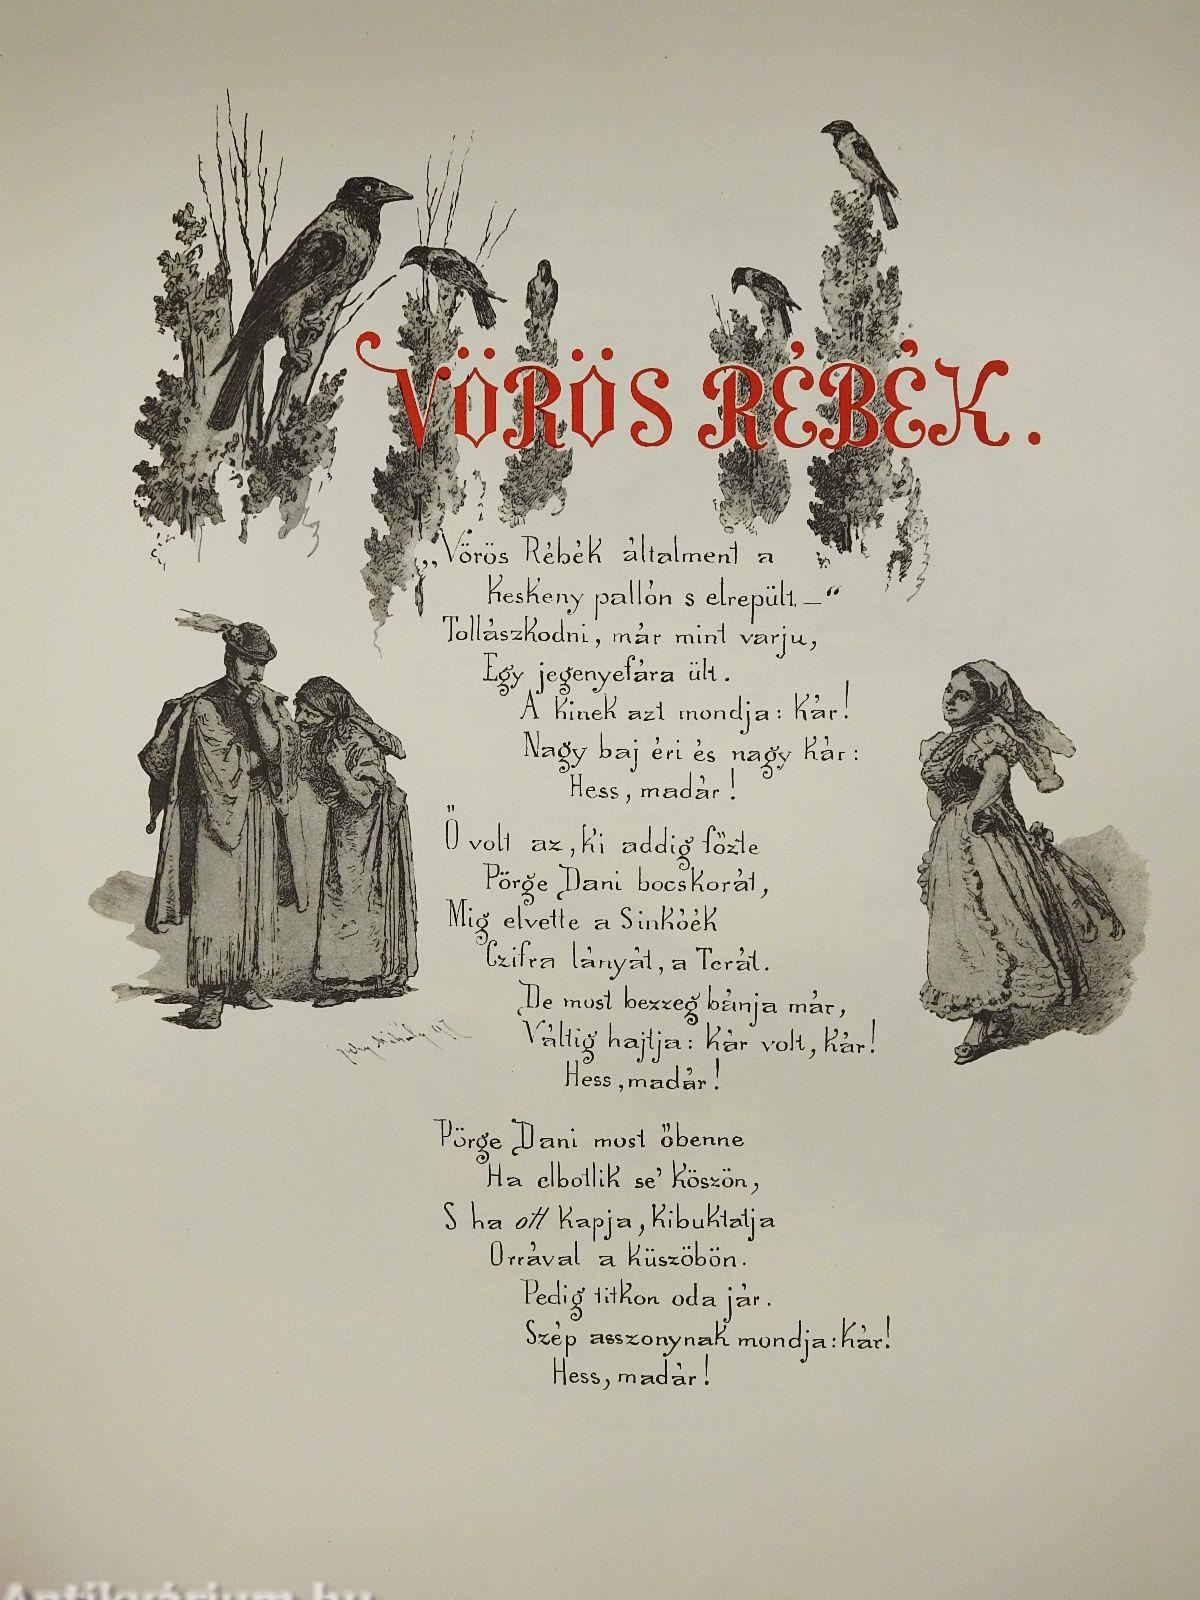 VÖRÖS RÉBÉK.
„Vörös Rébék általment a
Keskeny pallón s elrepült. —“
Tollászkodni, már mint varju,
Egy jegenyefára ült.
A kinek azt mondja: Kár!
Nagy baj éri és nagy kár:
Hess, madár!
Ő volt az, ki addig főzte
Pörge Dani bocskorát,
Mig elvette a Sinkóék
Czifra lányát, a Terát.
De most bezzeg bánja már,
Váltig hajtja: kár volt, kár!
Hess, madár!
Pörge Dani most őbenne
Ha elbotlik se' köszön,
S ha ott kapja, kibuktatja
Orrával a küszöbön.
Pedig titkon oda jár.
Szép asszonynak mondja: kár!
Hess, madár!
Zichy Mihály
Antikvárium.hu